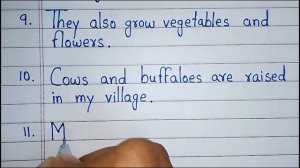 9. They also grow vegetables and
flowers.
10. Cows and buffaloes are raised
in my village.
11. M